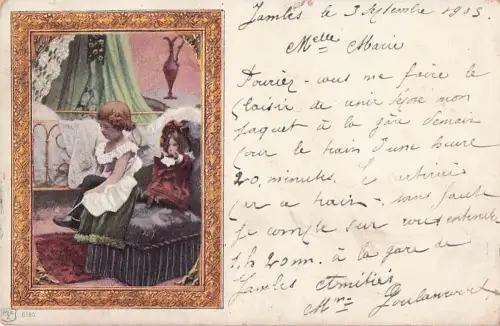 Jambes le 3 Septembre 1903
Melle Marie
Pouriez-vous me faire le
plaisir de venir déposé mon
paquet à la gare demain
pour le train d'une heure
20. minutes.
par ce train - sans faute
je compte sur vous
1. h 20 m. à la gare de
Jambes Amitiés
Mme